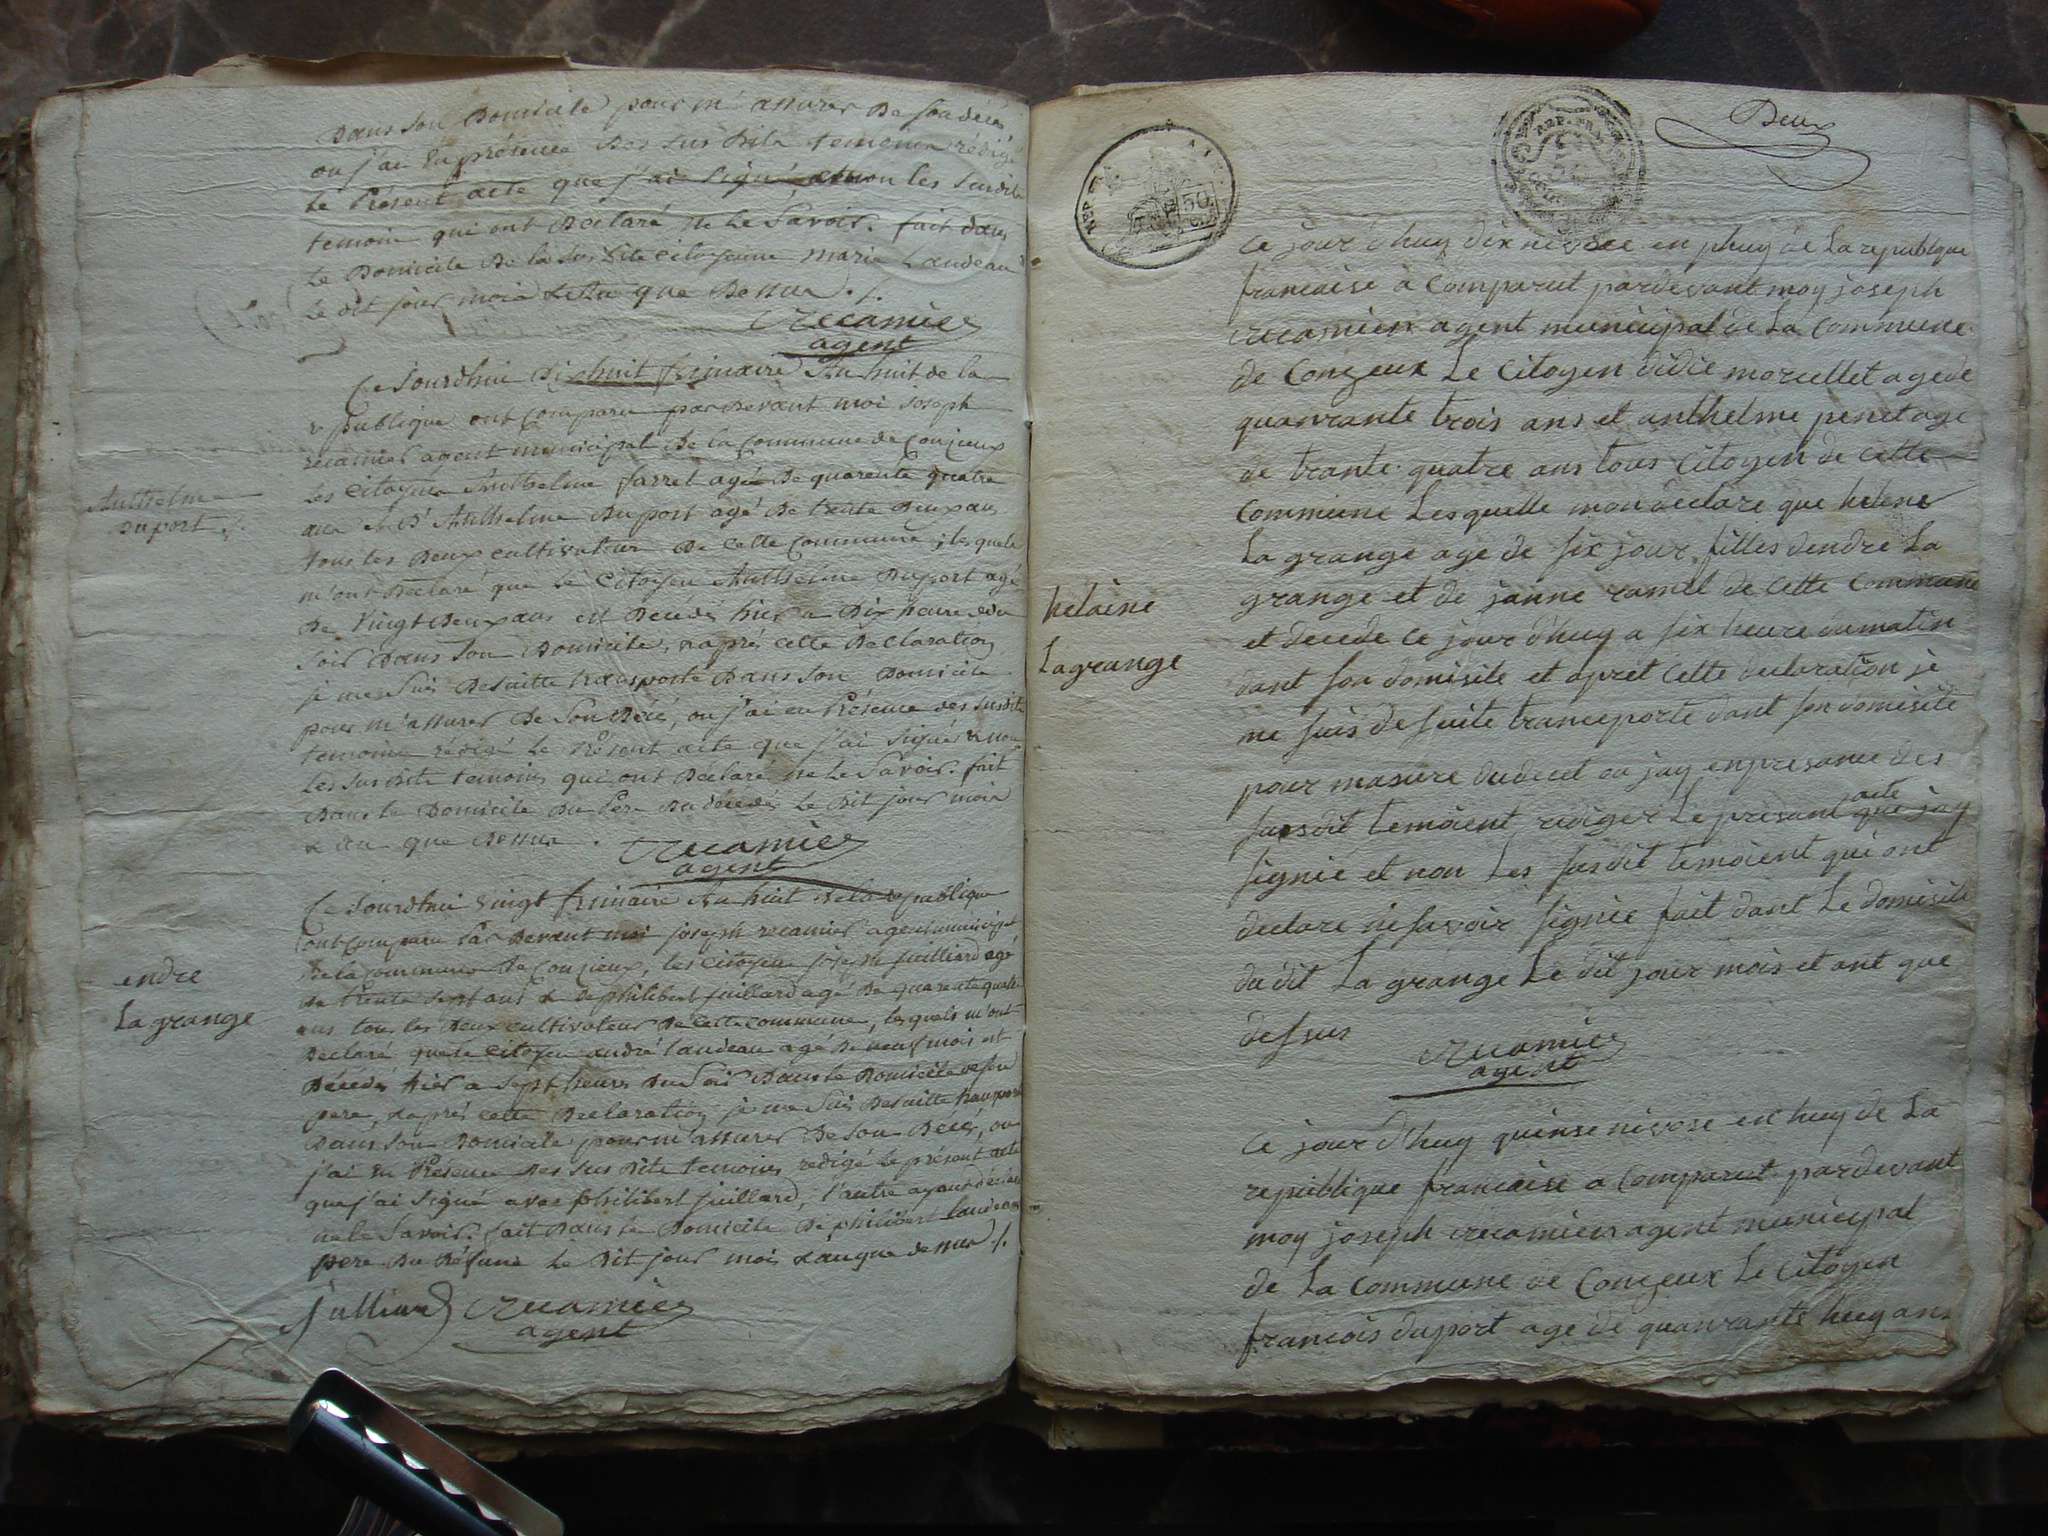 Dans son Domicile pour m'assurer de son décès
ou j'ai en présence des sus dits temoins rédigé
le Présent acte que j'ai signé, et non les susdits
temoins qui ont declaré ne le savoir. fait dans
le Domicile de la sus dite citoyenne marie Laudeau
le dit jour mois & an que dessus ./.
Recamier
agent
Ce Jourdhui Dixhuit frimaire An huit de la
republique ont comparu pardevant moi joseph
recamier agent municipal de la Commune de Conzieux
Anthelme
Duport ./.
les citoyens Anthelme farret agé de quarente quatre
ans & D' Anthelme Duport agé de trente deux ans
tous les deux cultivateur de cette commune, lesquels
m'ont déclaré que le citoyen Anthelme Duport agé
de vingt deux ans est décédé hier a Dix heure du
soir dans son domicile, & après cette declaration
je me suis desuitte transporté dans son Domicile
pour m'assurer de son décés, ou j'ai en Présence des susdits
temoins rédigé le Présent acte que j'ai signé & non
les susdits temoins qui ont déclaré ne le savoir. fait
dans le domicile du Père du décédé le dit jour mois
& an que dessus .
Recamier
agent
Ce Jourdhui vingt frimaire An huit de la republique
ont comparu Par devant moi joseph recamier agent municipal
de la commune de Conzieux, les citoyens joseph juilliard agé
endre
La grange
de trente sept ans & de philibert juillard agé de quarente quatre
ans tous les deux cultivateur de cette commune, lesquels m'ont
declaré que le citoyen andré laudeau agé de neuf mois est
Décédé hier a sept heures du soir dans le Domicile de son
pere, & après cette declaration je me suis desuitte transporté
dans son domicile pour m'assurer de son décés, ou
j'ai en Présence des sus dits temoins redigé le présent acte
que j'ai signé avec philibert juillard, l'autre ayant déclaré
ne le savoir. fait dans le domicile de philibert laudeau
pere du défund le dit jour mois & an que dessus ./.
Julliard Recamier
agent
Deux
REP. FRA.
50
Ce jour d'huy dix nivose en phuy de La republique
francaise à Comparut pardevant moy joseph
recamier agent municipal de La Commune
de Conzeux Le Citoyen didie morcellet agede
quanrante trois ans et anthelme penet age
de trante quatre ans tous Citoyen de cette
Commune Lesquelle mon declare que helene
La grange age de six jour filles dendre La
helaine
Lagrange
grange et de janne ramel de cette commune
et decede ce jour d'huy a six heure dumatin
dant son domisile et apret cette declaration je
me suis desuite transporte dant son domisile
pour masure dudecet ou jay enpresance des
susdit temoient rediger Le presant acte que jay
signie et non Les susdit temoient qui ont
declare nesavoir signie fait dant Le domisile
du dit La grange Le dit jour mois et ant que
dessus
Recamier
agent
Ce jour d'huy quinse nivose en huy de La
republique francaise a Comparut pardevant
moy joseph recamier agent municipal
de La Commune de Conzeux Le Citoyen
francois duport age de quanrante huy ans